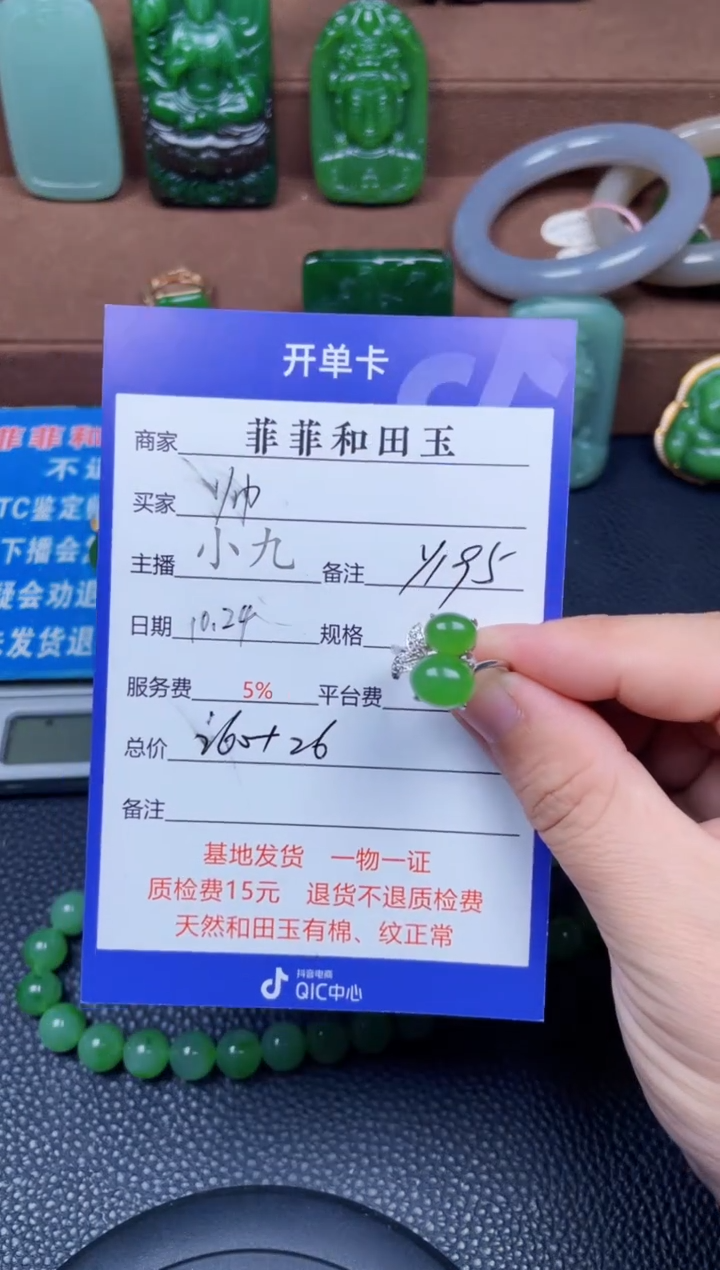 开单卡
商家 菲菲和田玉
买家 y/帅
主播 小九 备注 y195
日期 10.24 规格
服务费 5% 平台费
总价 265+26
备注
基地发货 一物一证
质检费15元 退货不退质检费
天然和田玉有棉、纹正常
抖音电商
QIC中心
菲菲和
不退
TC鉴定
下播会
疑会劝退
发货退